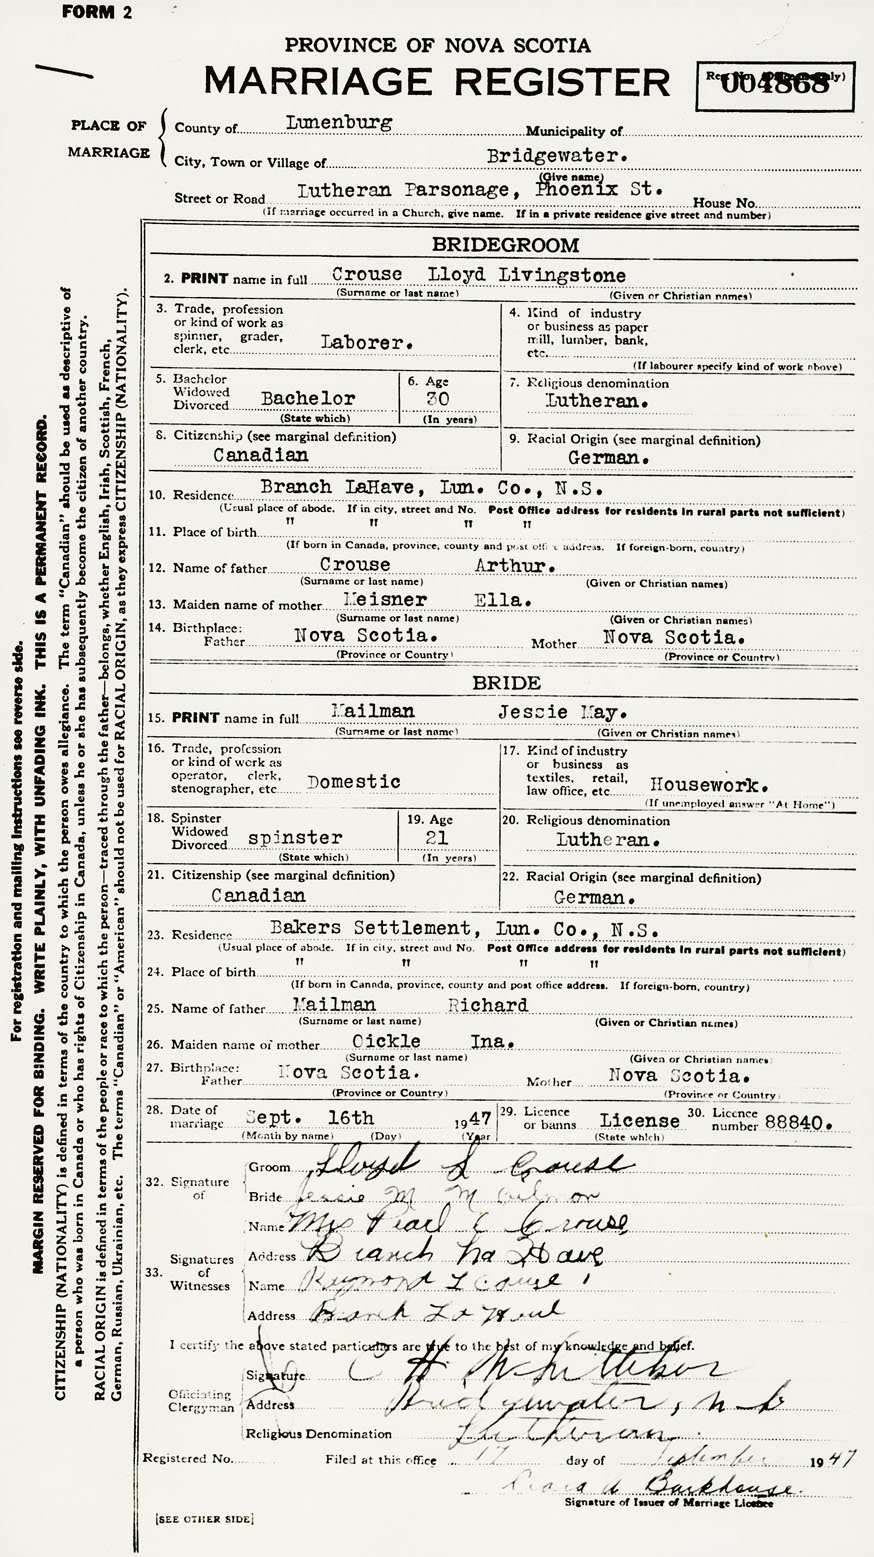 FORM 2
PROVINCE OF NOVA SCOTIA
MARRIAGE REGISTER
004868
PLACE OF MARRIAGE
County of Lunenburg Municipality of
City, Town or Village of Bridgewater.
(Give name)
Street or Road Lutheran Parsonage, Phoenix St. House No.
(If marriage occurred in a Church, give name. If in a private residence give street and number)
BRIDEGROOM
2. PRINT name in full Crouse Lloyd Livingstone
(Surname or last name) (Given or Christian names)
3. Trade, profession or kind of work as spinner, grader, clerk, etc. Laborer.
4. Kind of industry or business as paper mill, lumber, bank, etc.
(If labourer specify kind of work above)
5. Bachelor Widowed Divorced Bachelor
(State which)
6. Age 30
(In years)
7. Religious denomination
Lutheran.
8. Citizenship (see marginal definition)
Canadian
9. Racial Origin (see marginal definition)
German.
10. Residence Branch LaHave, Lun. Co., N.S.
(Usual place of abode. If in city, street and No. Post Office address for residents in rural parts not sufficient)
11. Place of birth " " " "
(If born in Canada, province, county and post office address. If foreign-born, country)
12. Name of father Crouse Arthur.
(Surname or last name) (Given or Christian names)
13. Maiden name of mother Meisner Ella.
(Surname or last name) (Given or Christian names)
14. Birthplace: Father Nova Scotia. Mother Nova Scotia.
(Province or Country) (Province or Country)
BRIDE
15. PRINT name in full Mailman Jessie May.
(Surname or last name) (Given or Christian names)
16. Trade, profession or kind of work as operator, clerk, stenographer, etc. Domestic
17. Kind of industry or business as textiles, retail, law office, etc. Housework.
(If unemployed answer "At Home")
18. Spinster Widowed Divorced spinster
(State which)
19. Age 21
(In years)
20. Religious denomination
Lutheran.
21. Citizenship (see marginal definition)
Canadian
22. Racial Origin (see marginal definition)
German.
23. Residence Bakers Settlement, Lun. Co., N.S.
(Usual place of abode. If in city, street and No. Post Office address for residents in rural parts not sufficient)
24. Place of birth " " " "
(If born in Canada, province, county and post office address. If foreign-born, country)
25. Name of father Mailman Richard
(Surname or last name) (Given or Christian names)
26. Maiden name of mother Oickle Ina.
(Surname or last name) (Given or Christian names)
27. Birthplace: Father Nova Scotia. Mother Nova Scotia.
(Province or Country) (Province or Country)
28. Date of marriage Sept. 16th 1947
(Month by name) (Day) (Year)
29. Licence or banns License
(State which)
30. Licence number 88840.
32. Signature of
Groom Lloyd L Crouse
Bride Jessie M Mailman
33. Signatures of Witnesses
Name Mrs Pearl C Crouse
Address Branch La Have
Name Raymond L Crouse
Address Branch La Have
I certify the above stated particulars are true to the best of my knowledge and belief.
Officiating Clergyman
Signature C H Whitteker
Address Bridgewater, N S
Religious Denomination Lutheran
Registered No. Filed at this office 17 day of September 1947
Barkhouse.
Signature of Issuer of Marriage Licence
[SEE OTHER SIDE]
For registration and mailing instructions see reverse side.
MARGIN RESERVED FOR BINDING. WRITE PLAINLY, WITH UNFADING INK. THIS IS A PERMANENT RECORD.
CITIZENSHIP (NATIONALITY) is defined in terms of the country to which the person owes allegiance. The term "Canadian" should be used as descriptive of
a person who was born in Canada or who has rights of Citizenship in Canada, unless he or she has subsequently become the citizen of another country.
RACIAL ORIGIN is defined in terms of the people or race to which the person—traced through the father—belongs, whether English, Irish, Scottish, French,
German, Russian, Ukrainian, etc. The terms "Canadian" or "American" should not be used for RACIAL ORIGIN, as they express CITIZENSHIP (NATIONALITY).